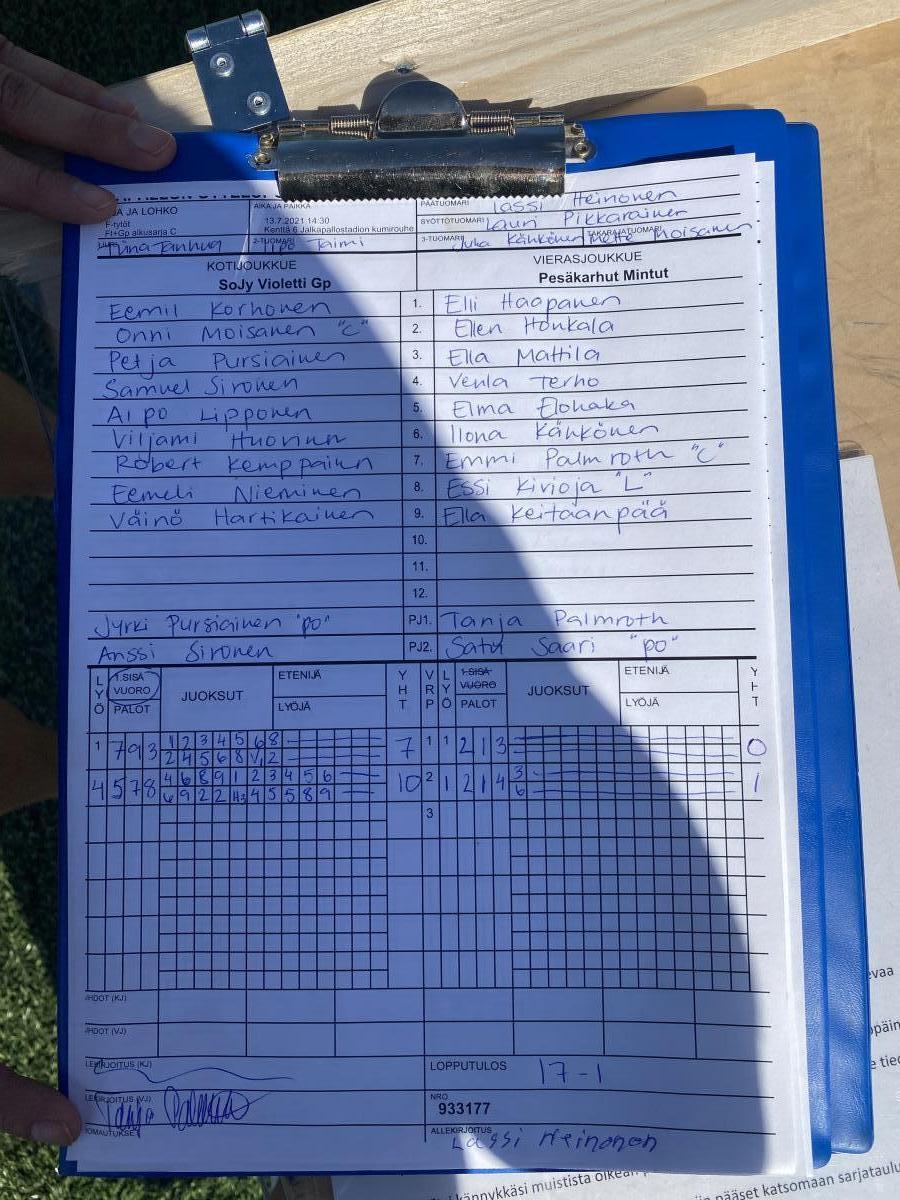 JA JA LOHKO
F-tytöt
Ft+Gp alkusarja C
AIKA JA PAIKKA
13.7.2021 14:30
Kenttä 6 Jalkapallostadion kumirouhe
PÄÄTUOMARI Lassi Heinonen
SYÖTTÖTUOMARI Lauri Pikkarainen
2-TUOMARI Taimi
3-TUOMARI Juha Känkönen TAKARAJATUOMARI Mette Moisanen
KOTIJOUKKUE VIERASJOUKKUE
SoJy Violetti Gp Pesäkarhut Mintut
Eemil Korhonen 1. Elli Haapanen
Onni Moisanen "C" 2. Ellen Honkala
Petja Pursiainen 3. Ella Mattila
Samuel Sironen 4. Venla Terho
Aipo Lipponen 5. Elma Elohaka
Viljami Huovinen 6. Ilona Känkönen
Robert Kemppainen 7. Emmi Palmroth "C"
Eemeli Nieminen 8. Essi Kivioja "L"
Väinö Hartikainen 9. Ella Keitaanpää
10.
11.
12.
Jyrki Pursiainen "po" PJ1. Tanja Palmroth
Anssi Sironen PJ2. Satu Saari "po"
LYÖ 1.SISÄ VUORO PALOT JUOKSUT ETENIJÄ LYÖJÄ YHT VRP LYÖ 1.SISÄ VUORO PALOT JUOKSUT ETENIJÄ LYÖJÄ YHT
1 7 9 3 1 2 3 4 5 6 8 7 1 1 2 1 3 0
2 4 5 6 8 V, 2
4 5 7 8 4 6 8 9 1 2 3 4 5 6 10 2 1 2 1 4 3 1
6 9 2 2 H3 4 5 5 8 9 6
3
HDOT (KJ)
HDOT (VJ)
LEKIRJOITUS (KJ) LOPPUTULOS 17-1
LEKIRJOITUS (VJ) Tanja Palmroth NRO
933177
OMAUTUKSET ALLEKIRJOITUS
Lassi Heinonen
evaa
opäin
e tied
vi kännykkäsi muistista oikean
in pääset katsomaan sarjataulu